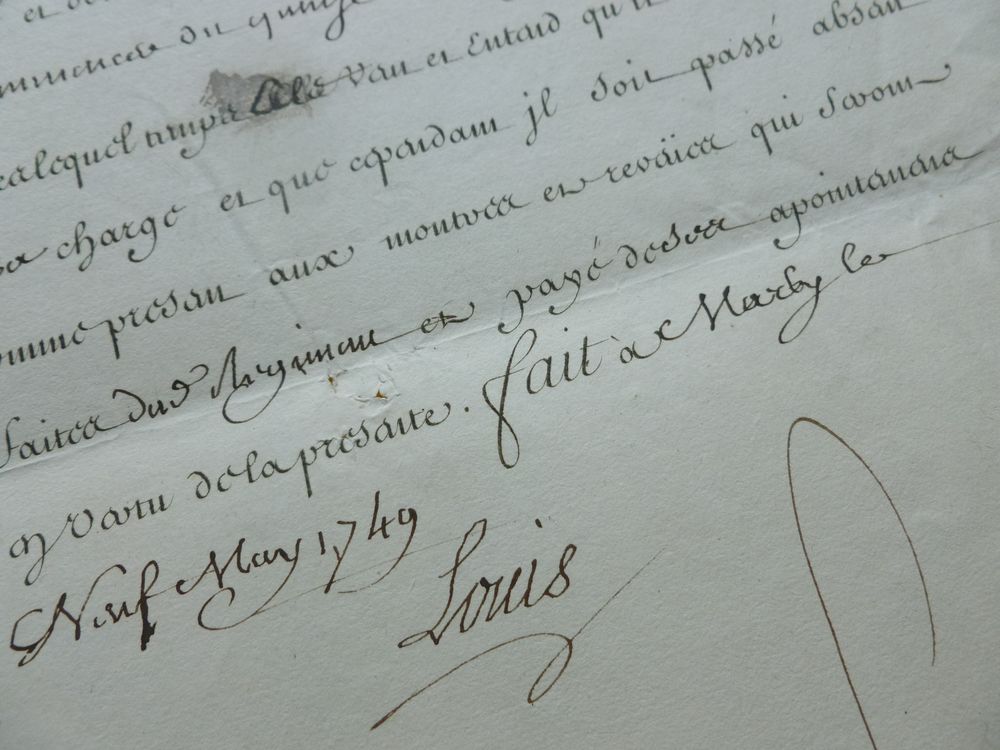 et
du quinze
lequel temps Cela Van et Entand qu'il
sa charge et que cependant jl soit passé absan
comme presan aux montres et revües qui seront
faites dud Regiment et payé deses apointamans
en Vertu de la presante. fait à Marly le
Neuf May 1749
Louis